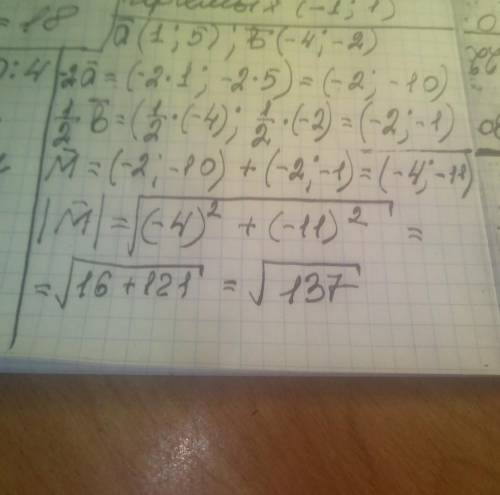 (-1; 1)
= 18
a⃗ (1; 5); b⃗ (-4; -2)
0:4
-2a⃗ = (-2·1; -2·5) = (-2; -10)
1/2 b⃗ = (1/2·(-4); 1/2·(-2) = (-2; -1)
M⃗ = (-2; -10) + (-2; -1) = (-4; -11)
|M⃗| = √(-4)² + (-11)² =
= √16 + 121 = √137